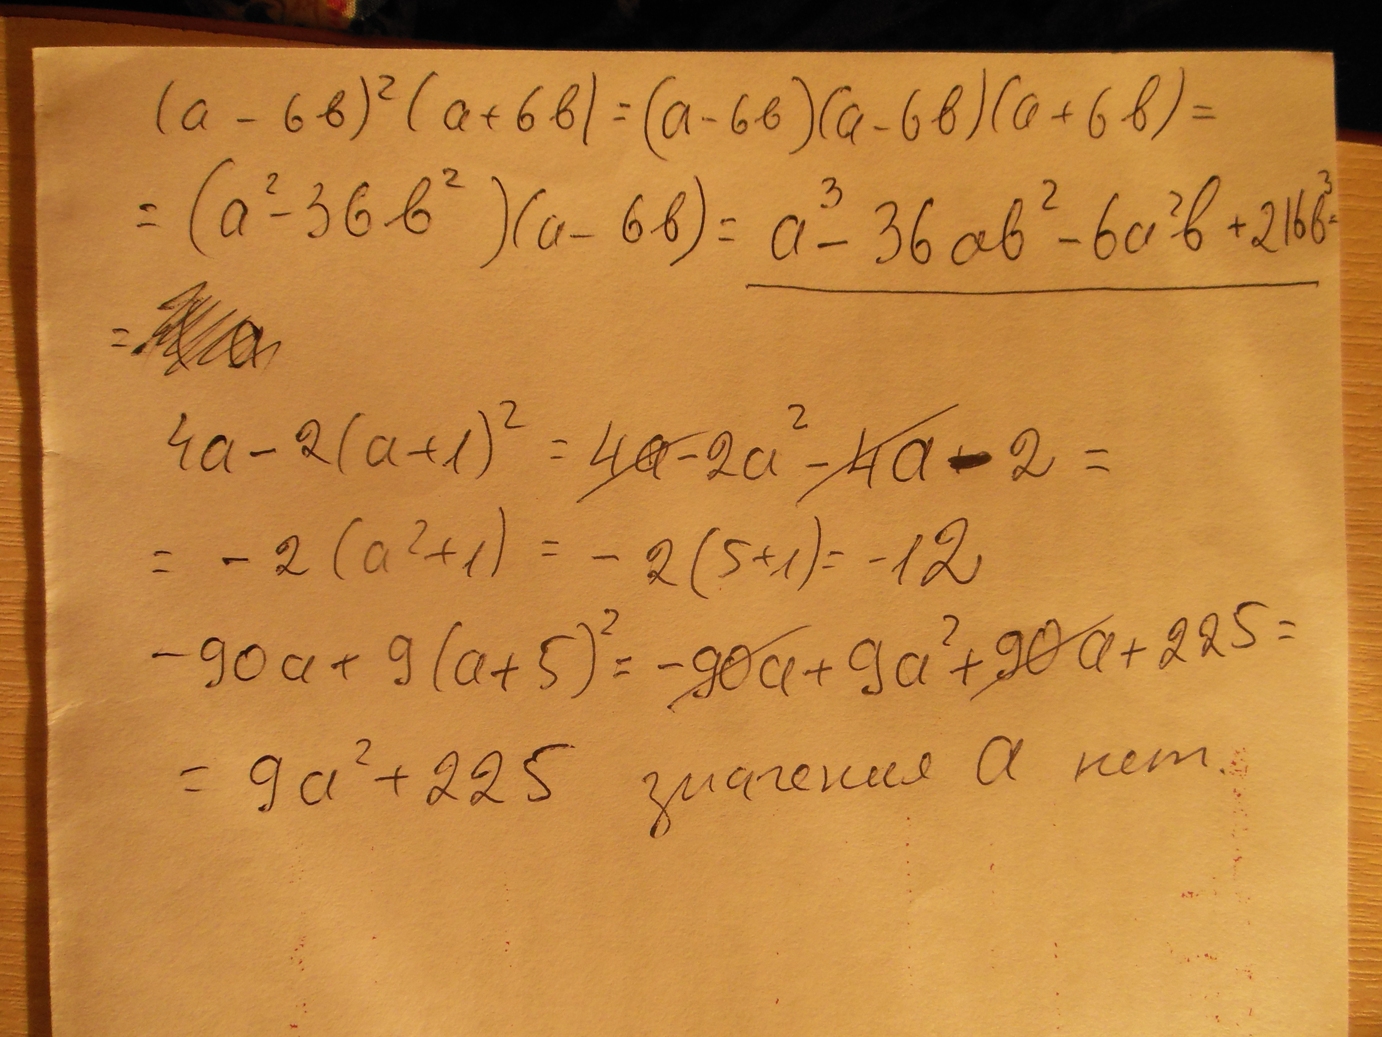 (a - 6в)²(a + 6в) = (a - 6в)(a - 6в)(a + 6в) =
= (a² - 36в²)(a - 6в) = a³ - 36aв² - 6a²в + 216в³ =
=
4a - 2(a+1)² = 4a - 2a² - 4a - 2 =
= - 2(a²+1) = - 2(5+1) = -12
-90a + 9(a+5)² = -90a + 9a² + 90a + 225 =
= 9a² + 225 значения a нет.